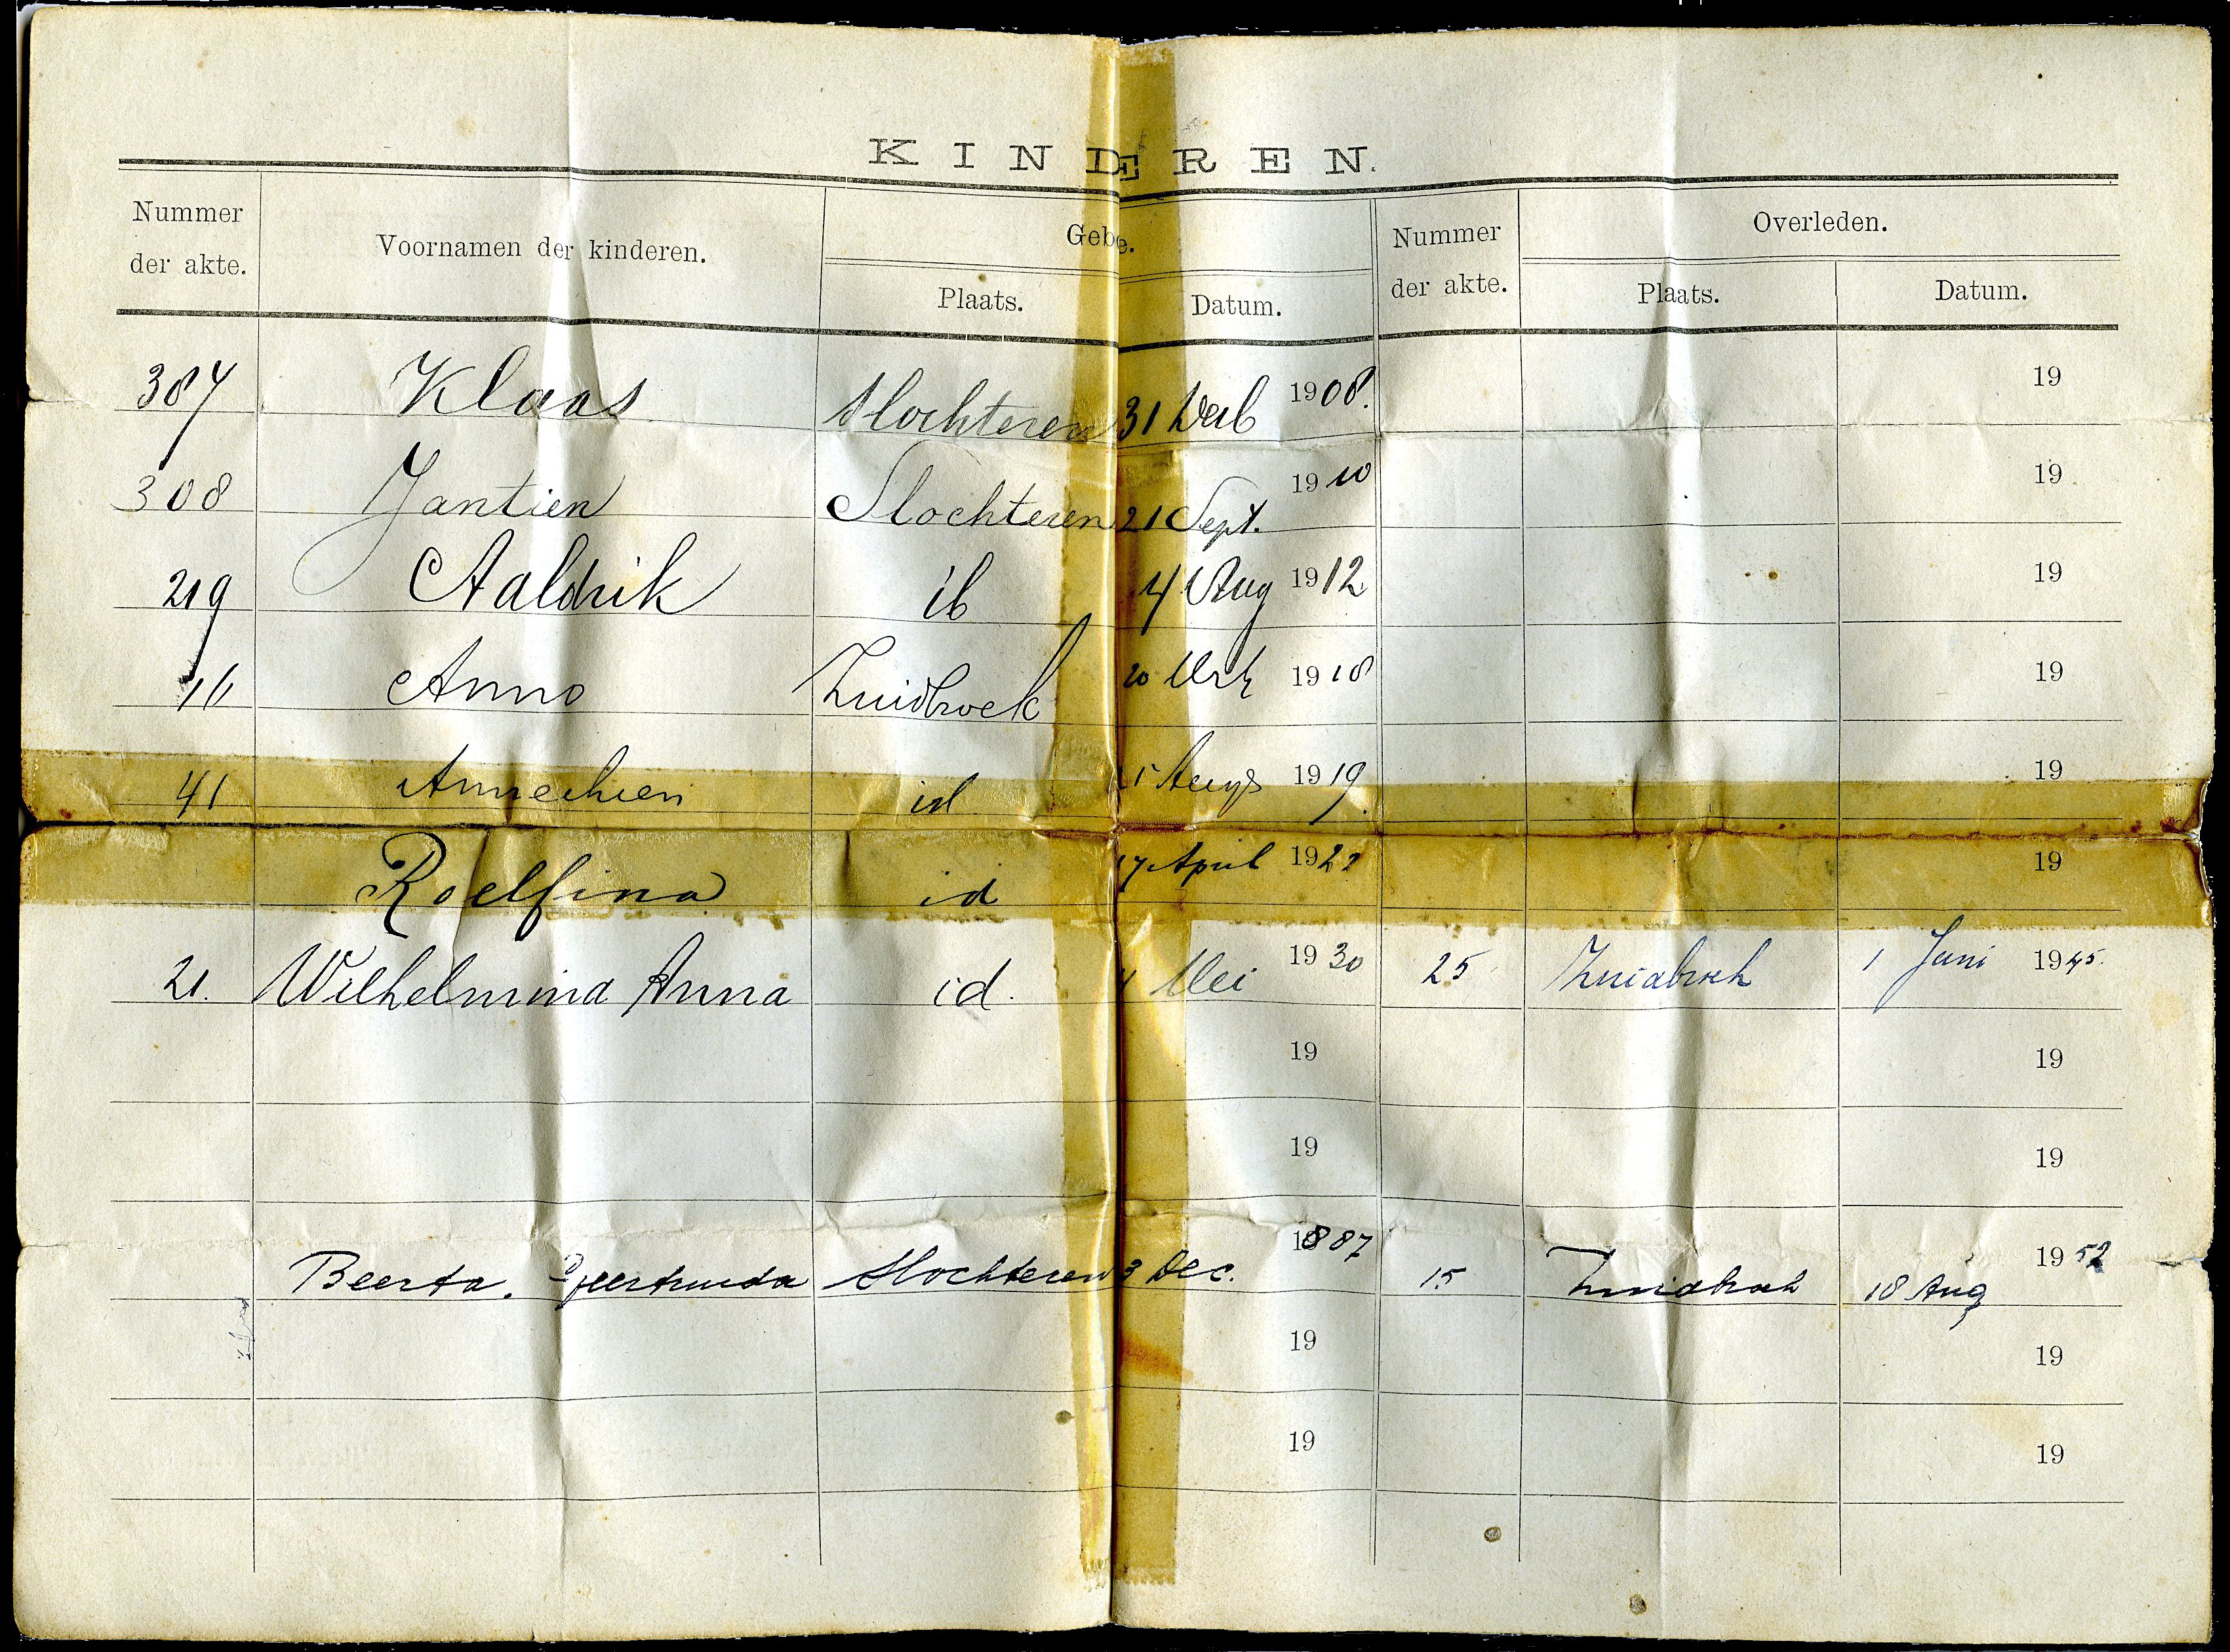 KINDEREN.
Nummer der akte. Voornamen der kinderen. Gebo e. Plaats. Datum. Nummer der akte. Overleden. Plaats. Datum.
387 Klaas Slochteren 31 1908. 19
308 Jantien Slochteren 21 Sept. 1910 19
219 Aaldrik ib 4 Aug 1912 19
16 Anno Zuidbroek 20 1918 19
41 Annechien id Aug 1919. 19
Roelfina id 17 April 1922 19
21. Wilhelmina Anna id. Mei 1930 25 Zuidbroek 1 Juni 1945.
19 19
19 19
Beerta. Geertruida Slochteren 3 Dec. 1887 15 Zuidbroek 18 Aug 1952
19 19
19 19